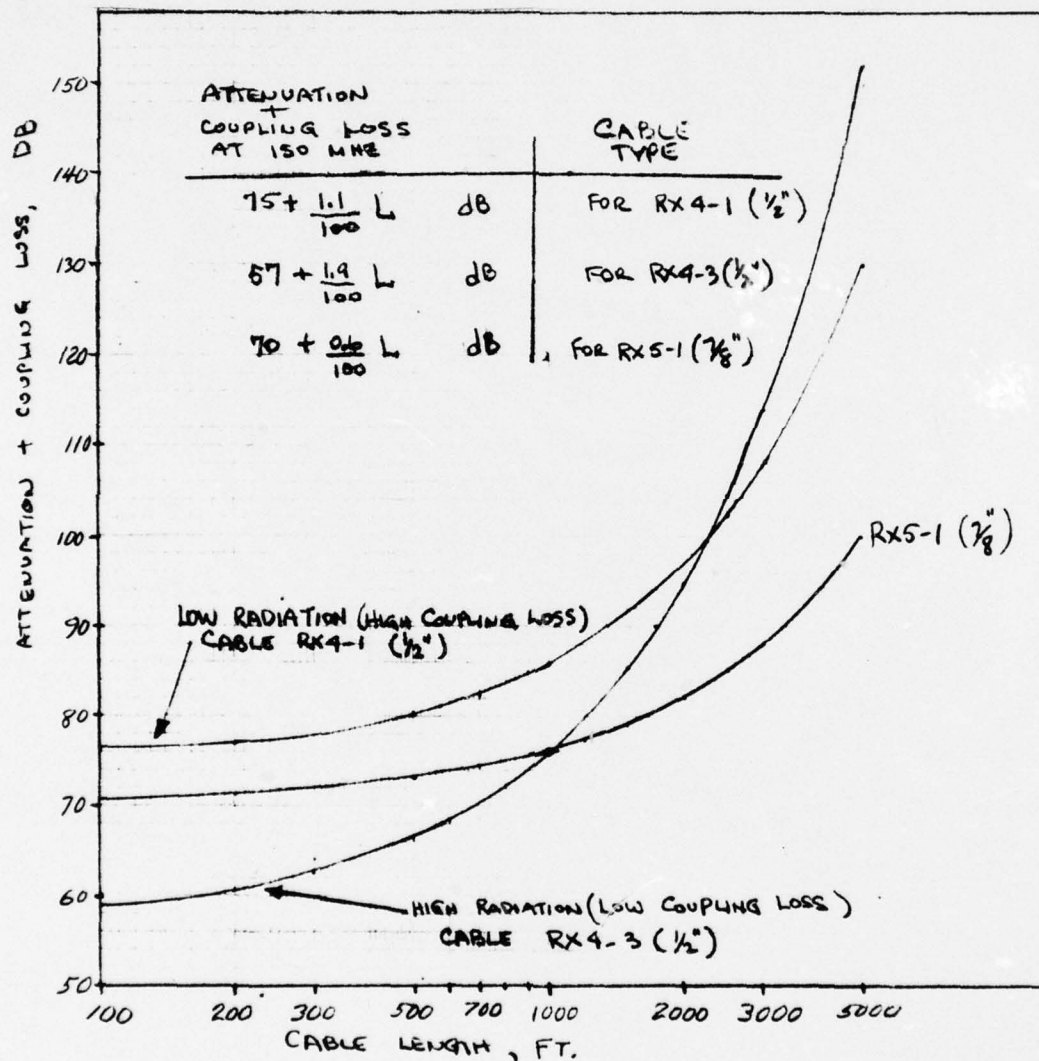 ATTENUATION + COUPLING LOSS, DB
150
140
130
120
110
100
90
80
70
60
50
ATTENUATION
+
COUPLING LOSS
AT 150 MHZ
CABLE
TYPE
75 + 1.1/100 L dB FOR RX4-1 (1/2")
57 + 1.9/100 L dB FOR RX4-3 (1/2")
70 + 0.6/100 L dB FOR RX5-1 (7/8")
RX5-1 (7/8")
LOW RADIATION (HIGH COUPLING LOSS)
CABLE RX4-1 (1/2")
HIGH RADIATION (LOW COUPLING LOSS)
CABLE RX4-3 (1/2")
100 200 300 500 700 1000 2000 3000 5000
CABLE LENGTH, FT.